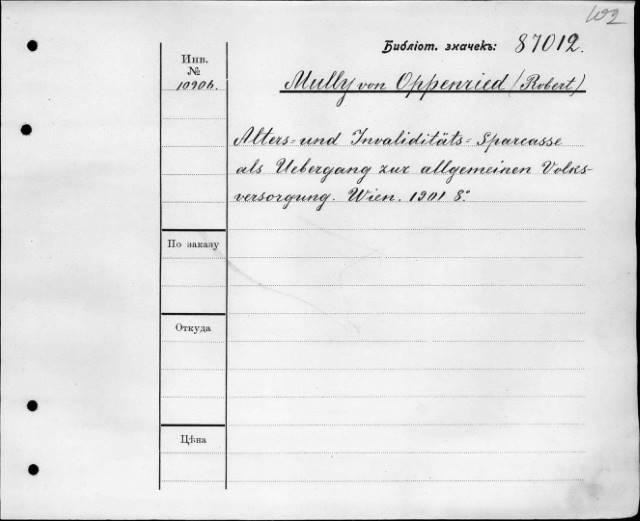 Библіот. значекъ: 87012.
Инв.
№
Mully von Oppenried (Robert)
Alters- und Invaliditäts-Sparcasse
als Uebergang zur allgemeinen Volks-
versorgung. Wien. 1901 8º
По заказу
Откуда
Цѣна